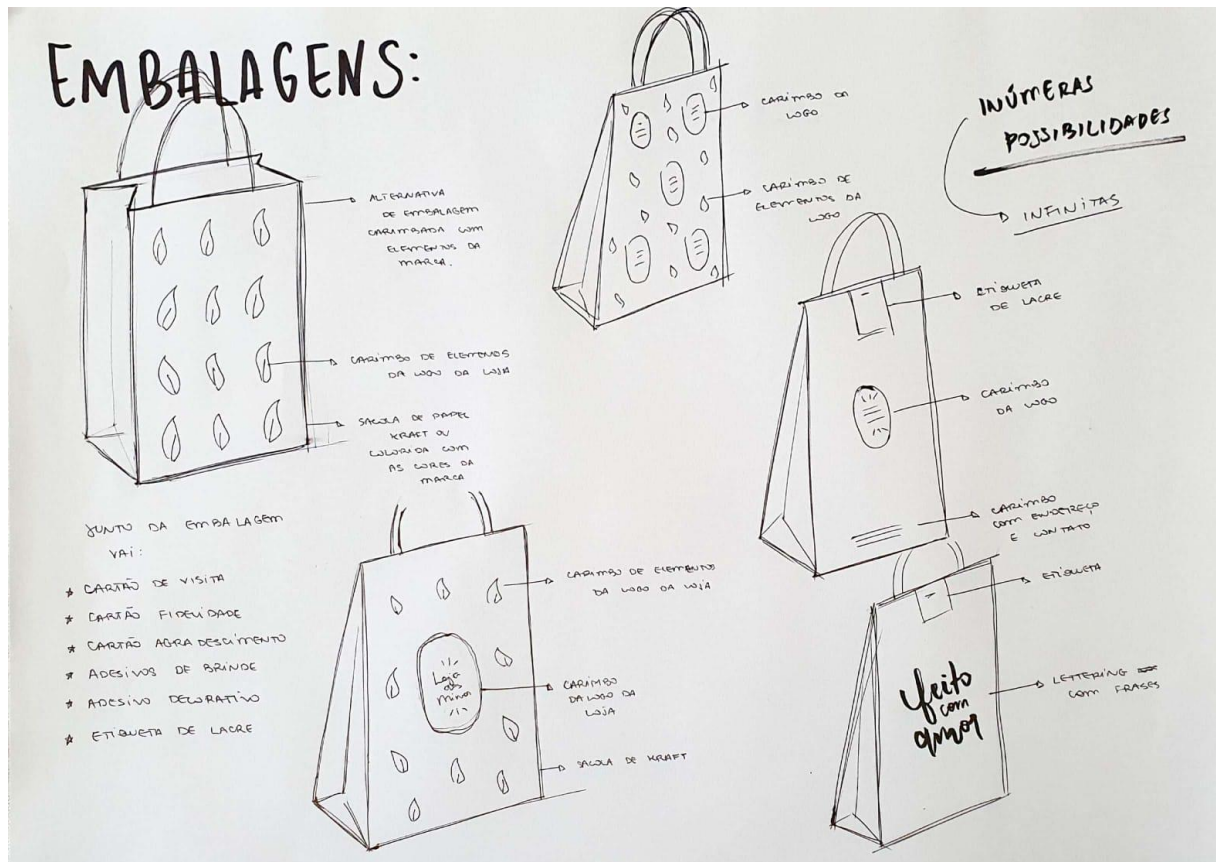 EMBALAGENS:
ALTERNATIVA
DE EMBALAGEM
CARIMBADA COM
ELEMENTOS DA
MARCA.
CARIMBO DE ELEMENOS
DA LOGO DA LOJA
SACOLA DE PAPEL
KRAFT OU
COLORIDA COM
AS CORES DA
MARCA
JUNTO DA EMBALAGEM
VAI:
★ CARTÃO DE VISITA
★ CARTÃO FIDELIDADE
★ CARTÃO AGRADESCIMENTO
★ ADESIVOS DE BRINDE
★ ADESIVO DECORATIVO
★ ETIQUETA DE LACRE
CARIMBO DA
LOGO
CARIMBO DE
ELEMENTOS DA
LOGO
INÚMERAS
POSSIBILIDADES
INFINITAS
ETIQUETA
DE LACRE
CARIMBO
DA LOGO
CARIMBO
COM ENDEREÇO
E CONTATO
CARIMBO DE ELEMENTOS
DA LOGO DA LOJA
Loja
das
minas
CARIMBO
DA LOGO DA
LOJA
SACOLA DE KRAFT
ETIQUETA
feito
com
amor
LETTERING
COM FRASES